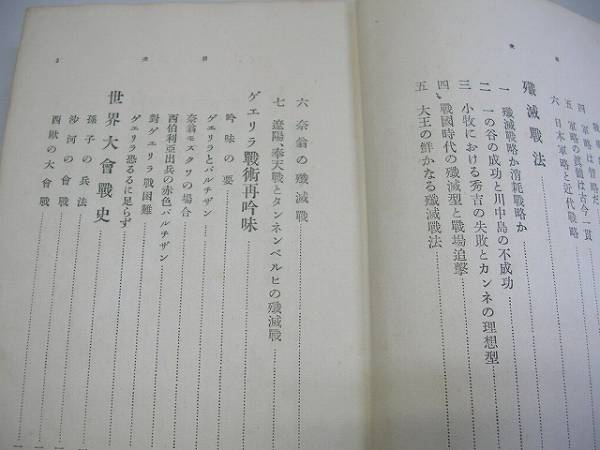 目次
四 軍略は詭略だ
五 軍略の眞髄は古今一貫
六 日本軍略と近代戰略
殲滅戰法
一 殲滅戰略か消耗戰略か
二 一の谷の成功と川中島の不成功
三 小牧における秀吉の失敗とカンネの理想型
四 戰國時代の殲滅型と戰場追擊
五 大王の鮮かなる殲滅戰法
目次
3
六 奈翁の殲滅戰
七 遼陽、奉天戰とタンネンベルヒの殲滅戰
ゲエリラ戰術再吟味
吟味の要
ゲエリラとパルチザン
奈翁モスクワの場合
西伯利亞出兵の赤色パルチザン
對ゲエリラ戰困難
ゲエリラ恐るゝに足らず
世界大會戰史
孫子の兵法
沙河の會戰
西歐の大會戰